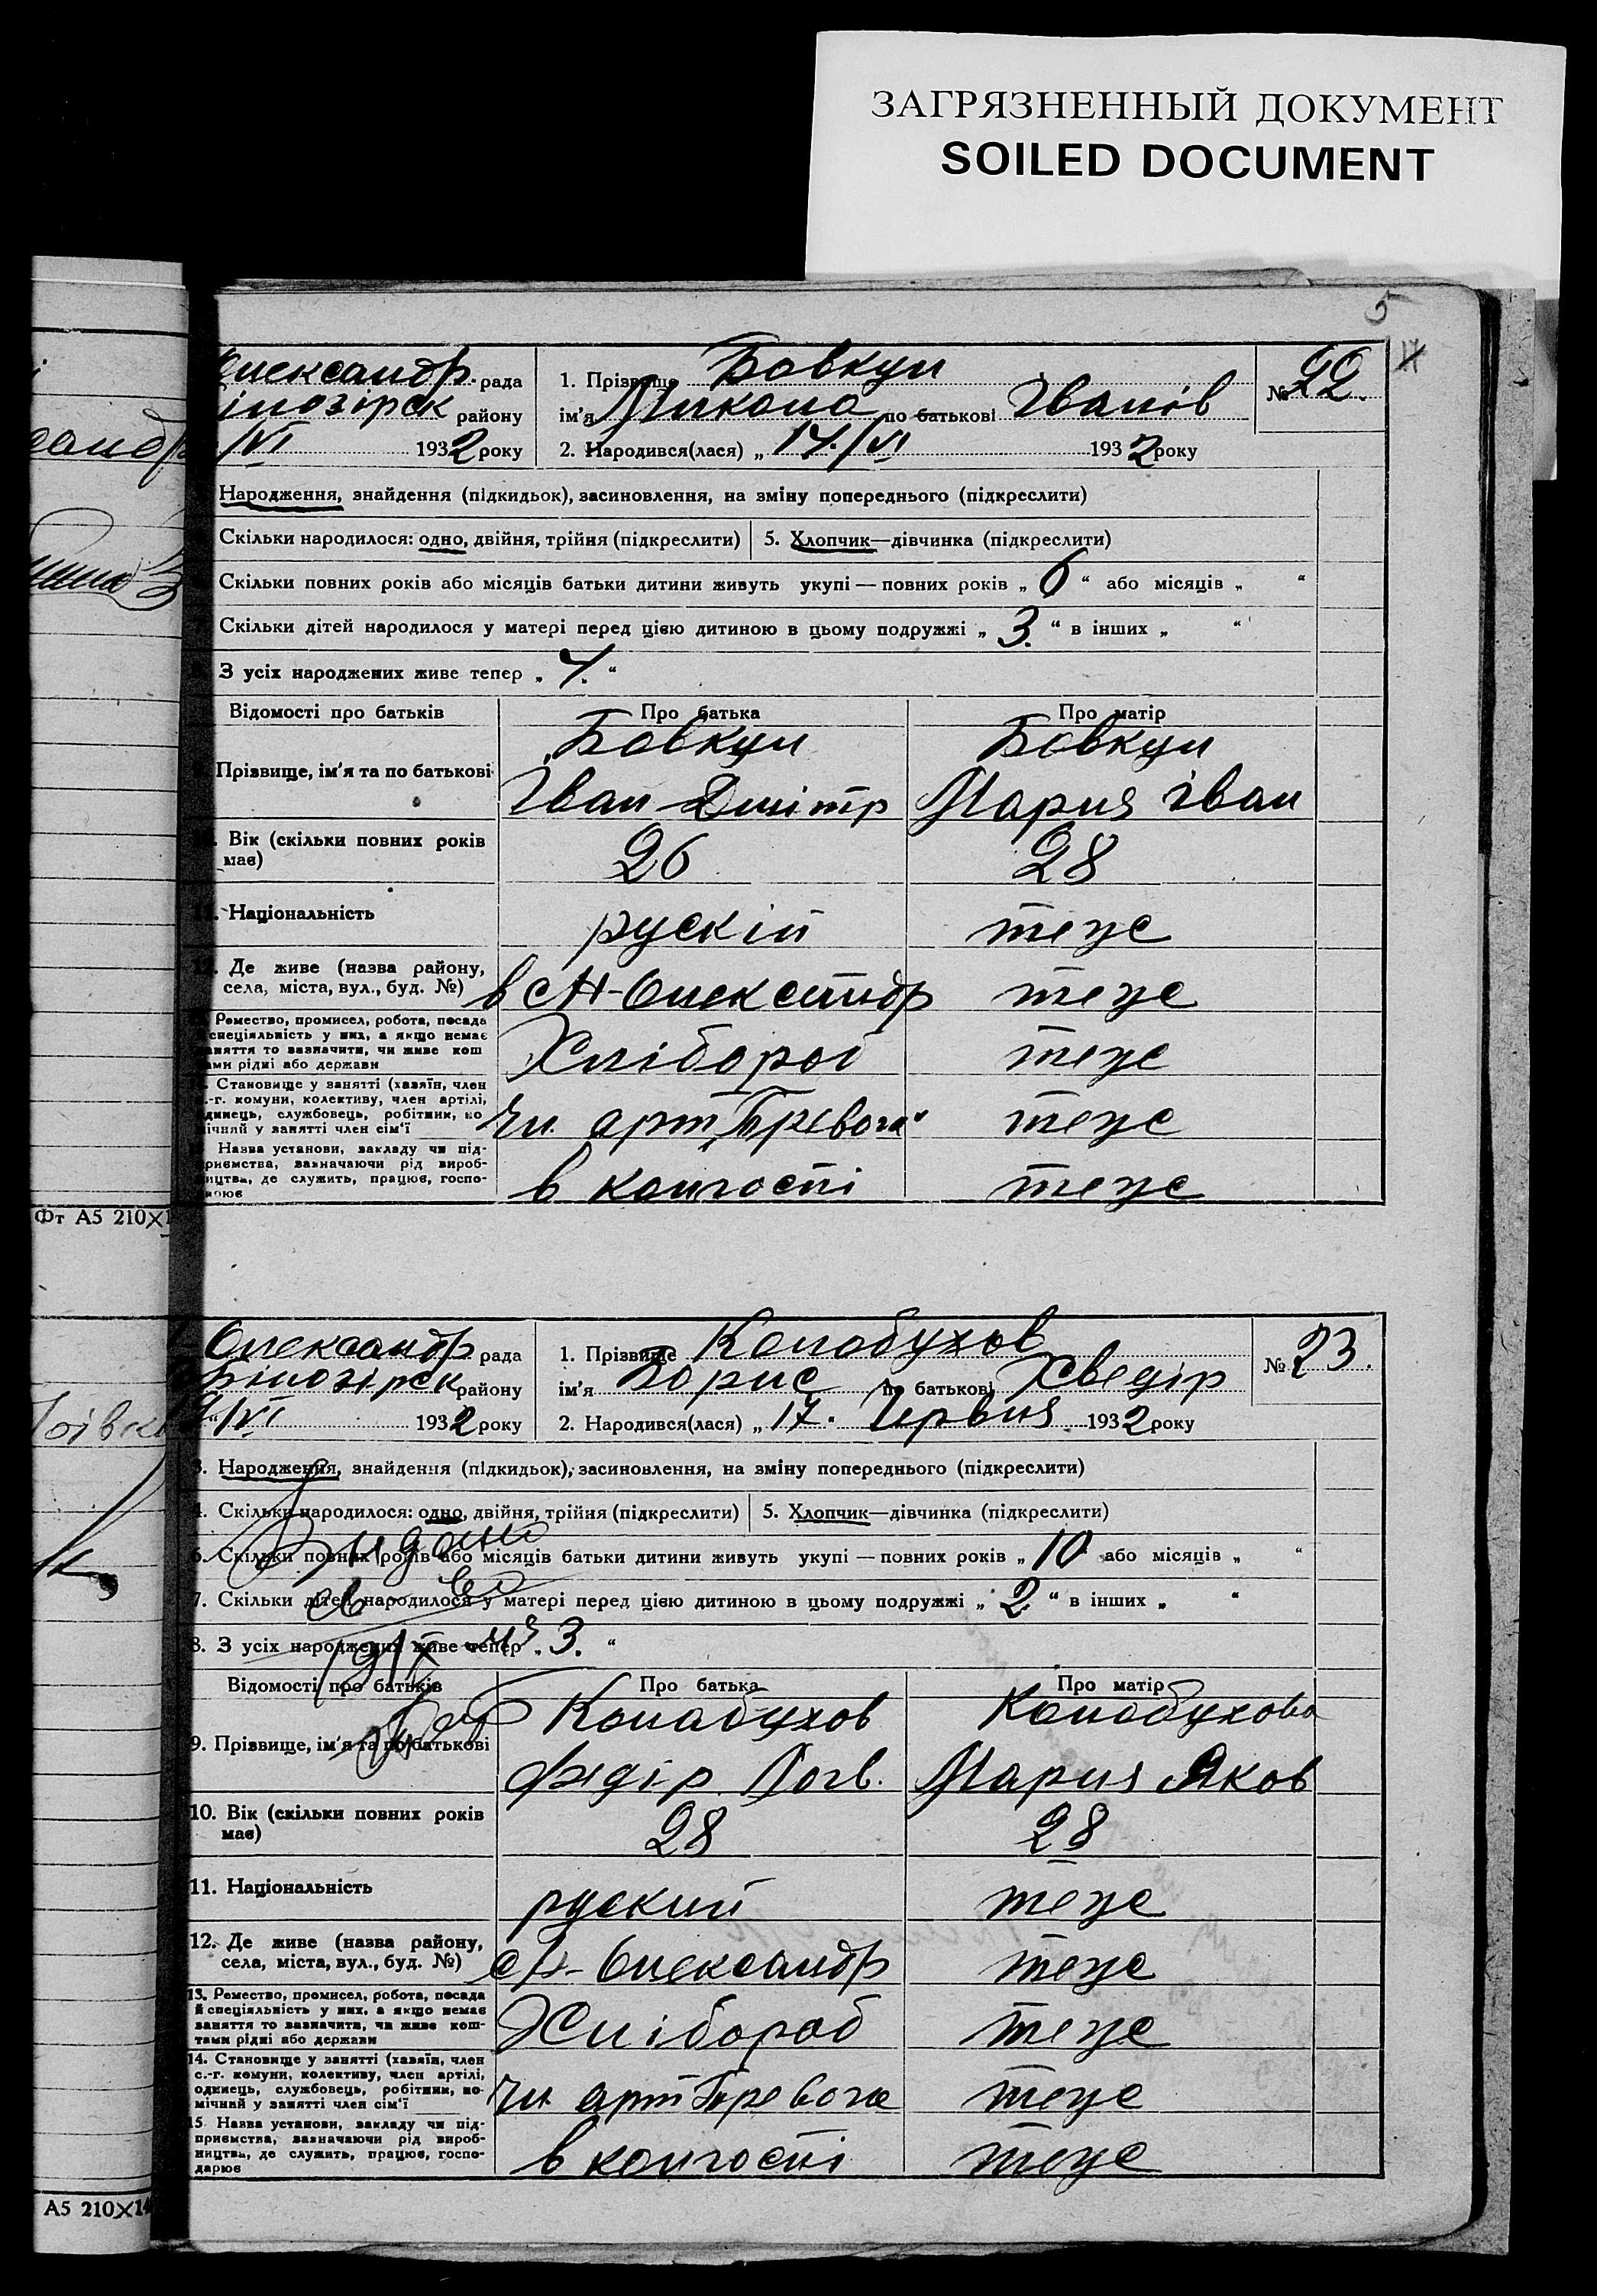 ЗАГРЯЗНЕННЫЙ ДОКУМЕНТ
SOILED DOCUMENT
5
Олександр. рада
ілозірск району
/VI 1932 року
1. Прізвище Бовкун
ім'я Микола по батькові Іванів
2. Народився(лася) „ 14./VI 1932 року
№ 22.
Народження, знайдення (підкидьок), засиновлення, на зміну попереднього (підкреслити)
Скільки народилося: одно, двійня, трійня (підкреслити) 5. Хлопчик—дівчинка (підкреслити)
Скільки повних років або місяців батьки дитини живуть укупі — повних років „ 6 “ або місяців „ “
Скільки дітей народилося у матері перед цією дитиною в цьому подружжі „ 3. “ в інших „ “
З усіх народжених живе тепер „ 4. “
Відомості про батьків Про батька Про матір
Прізвище, ім'я та по батькові
Бовкун Бовкун
Іван Дмітр Мария Іван
Вік (скільки повних років має) 26 28
11. Національність рускій теже
12. Де живе (назва району, села, міста, вул., буд. №) в сН-Олександр теже
Ремество, промисел, робота, посада спеціяльність у них, а якщо немає заняття то зазначити, чи живе кош тами рідні або держави Хлібороб теже
Становище у занятті (хазяїн, член с.-г. комуни, колективу, член артілі, одинець, службовець, робітник, по мічний у занятті член сім'ї Чл. арт теже
Назва установи, закладу чи під- приємства, зазначаючи рід вироб- ництва, де служить, працює, госпо- в колгоспі теже
Фт А5 210×1
Олександр рада
Білозірск району
/VI 1932 року
1. Прізвище Колабухов
ім'я Борис по батькові Хведір
2. Народився(лася) „ 17. Червня 1932 року
№ 23.
3. Народження, знайдення (підкидьок), засиновлення, на зміну попереднього (підкреслити)
4. Скільки народилося: одно, двійня, трійня (підкреслити) 5. Хлопчик—дівчинка (підкреслити)
Видано
6. Скільки повних років або місяців батьки дитини живуть укупі — повних років „ 10 “ або місяців „ “
7. Скільки дітей народилося у матері перед цією дитиною в цьому подружжі „ 2 “ в інших „ “
8. З усіх народжених живе тепер „ 3. “
Відомості про батьків Про батька Про матір
9. Прізвище, ім'я та по батькові
Колабухов Колабухова
Федір Логв. Мария Яков
10. Вік (скільки повних років має) 28 28
11. Національність руский теже
12. Де живе (назва району, села, міста, вул., буд. №) сН- Олександр теже
13. Ремество, промисел, робота, посада й спеціяльність у них, а якщо немає заняття то зазначити, чи живе кош- тами рідні або держави Хлібороб теже
14. Становище у занятті (хазяїн, член с.-г. комуни, колективу, член артілі, одинець, службовець, робітник, по- мічний у занятті член сім'ї Чл арт теже
15 Назва установи, закладу чи під- приємства, зазначаючи рід вироб- ництва, де служить, працює, госпо- дарює в колгоспі теже
А5 210×14